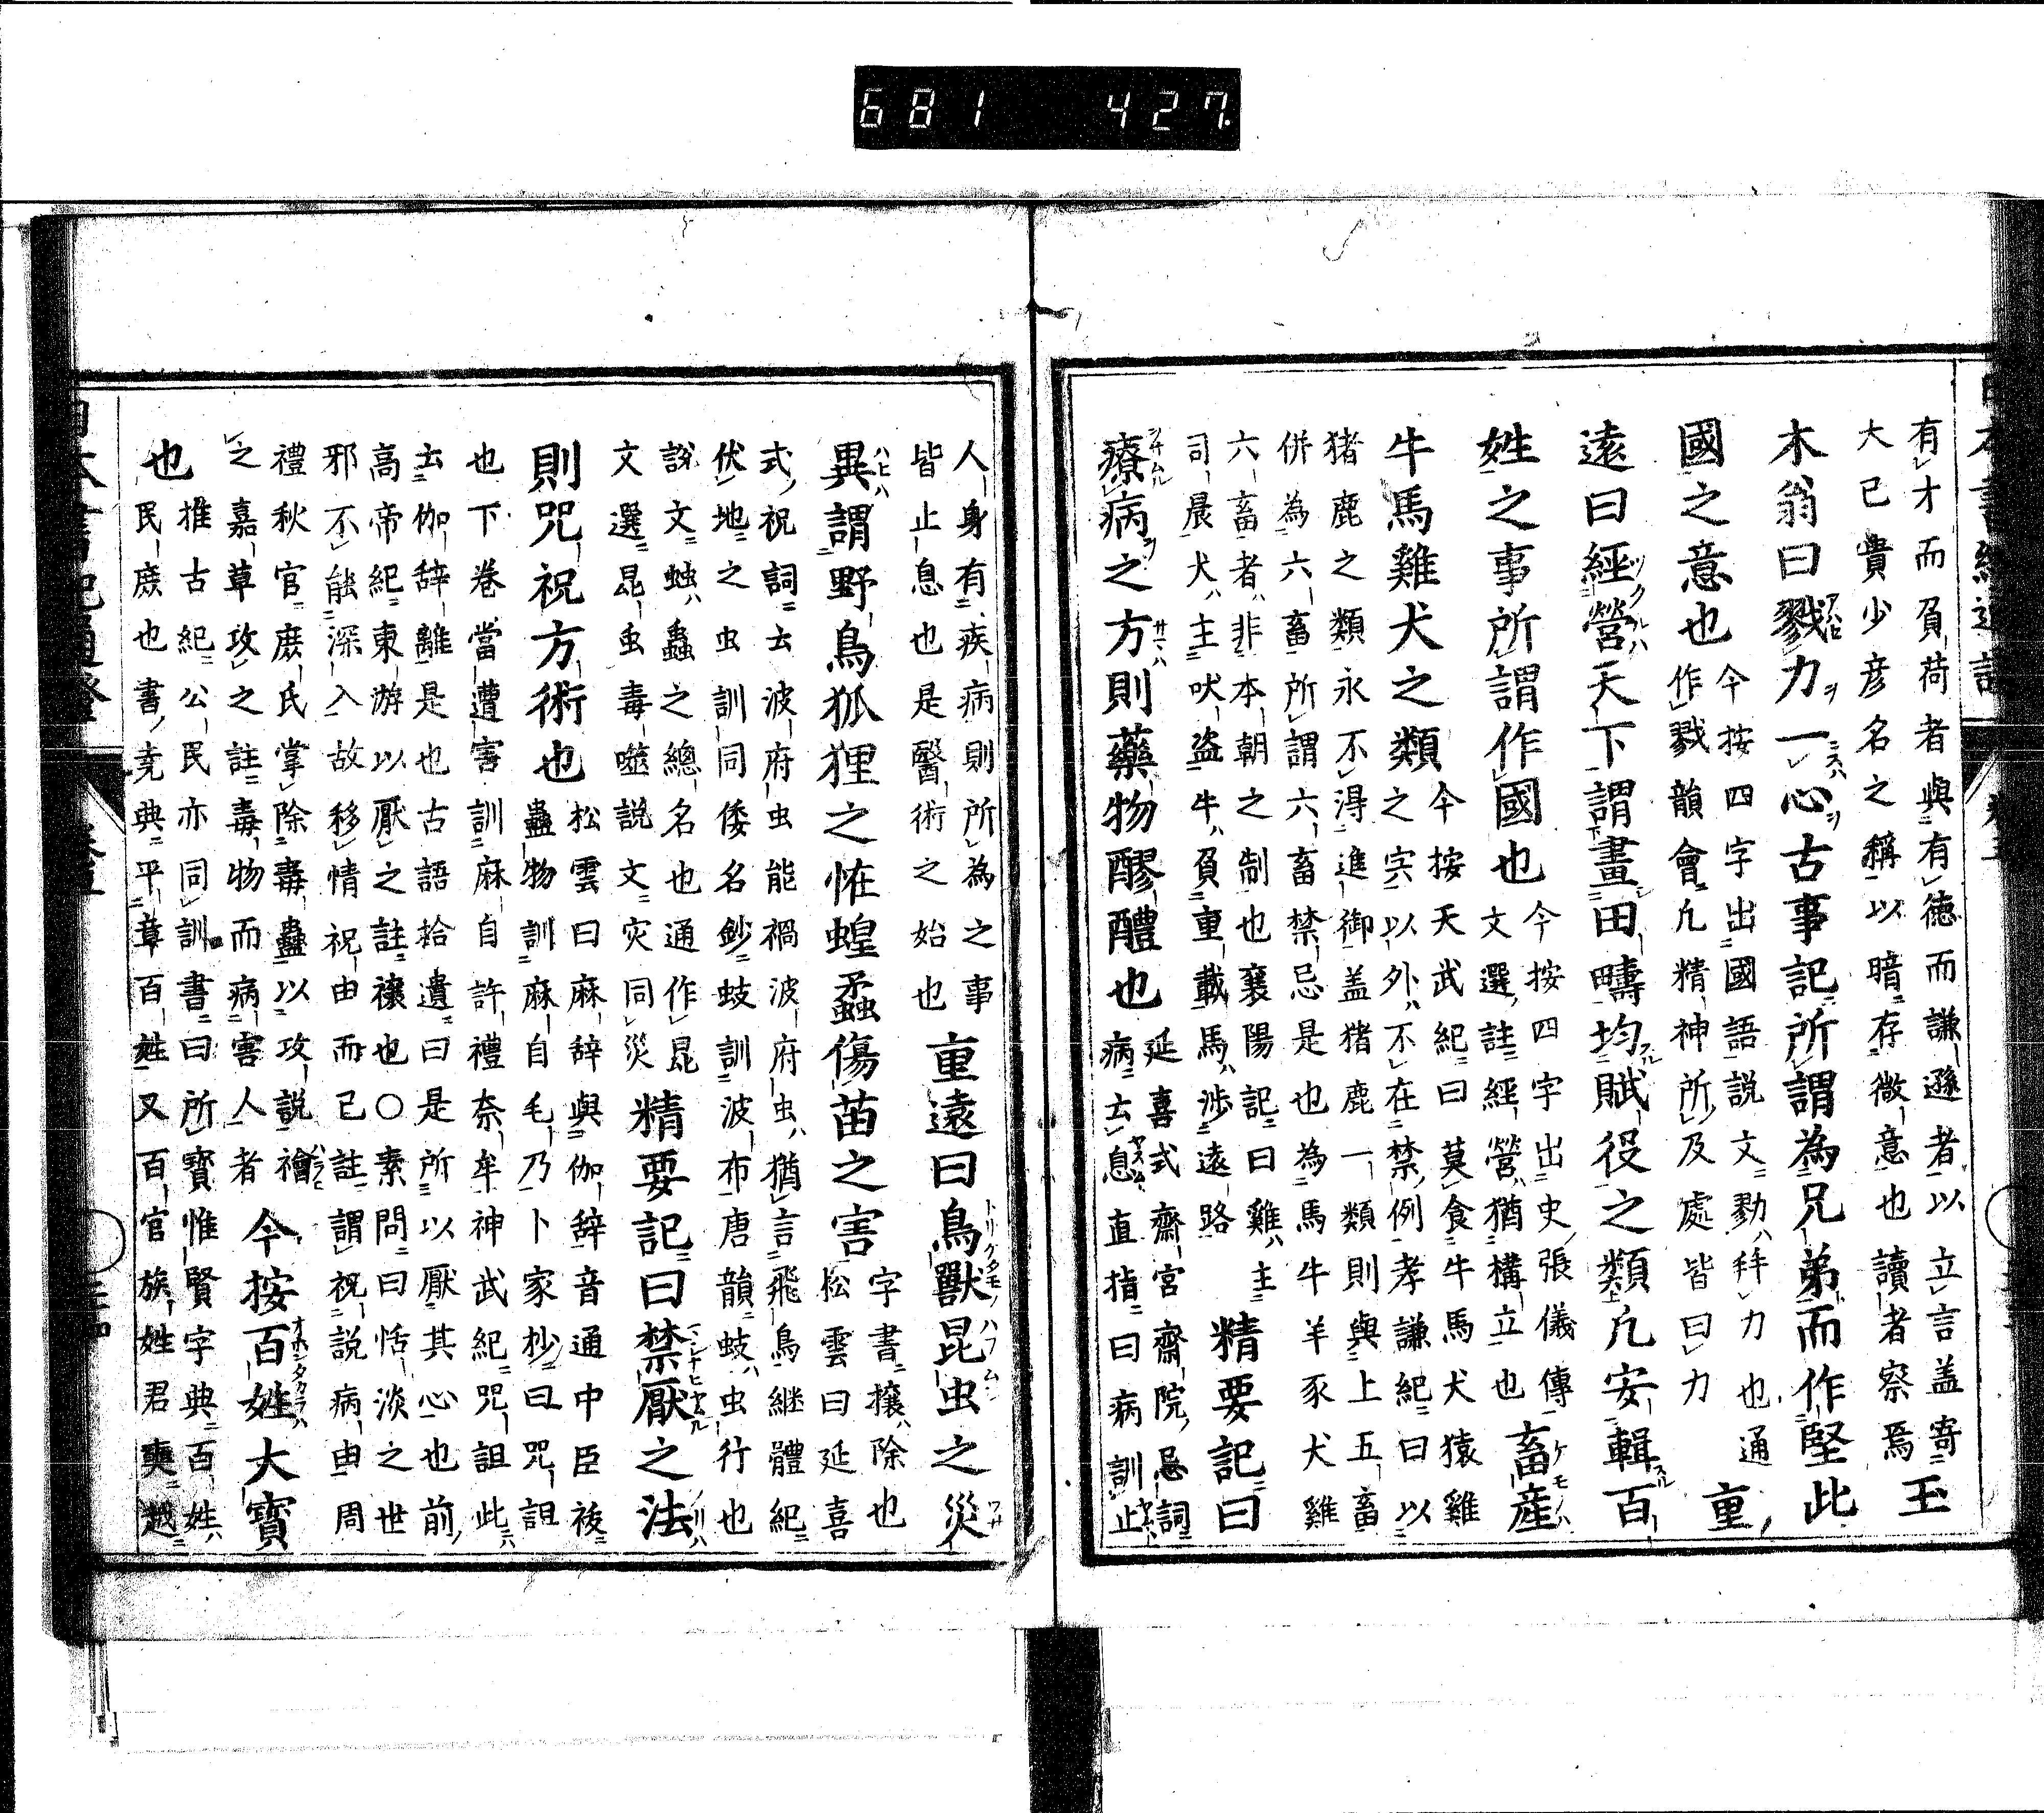 681 427.
有才而負荷者與有徳而謙遜者以立言盖寄
大己貴少彦名之稱以暗存微意也讀者察焉
玉
木翁曰戮力一心古事記所謂為兄弟而作堅此
國之意也
今按四字出國語説文勠併力也通
作戮韻會凢精神所及處皆曰力
重
遠曰經營天下謂畫田疇均賦役之類凢安輯百
姓之事所謂作國也
今按四字出史張儀傳
文選註經營猶構立也
畜産
牛馬雞犬之類
今按天武紀曰莫食牛馬犬猿雞
之宍以外不在禁例孝謙紀曰以
猪鹿之類永不得進御盖猪鹿一類則與上五畜
併為六畜所謂六畜禁忌是也為馬牛羊豕犬雞
六畜者非本朝之制也襄陽記曰雞主
司晨犬主吠盗牛負重載馬渉遠路
精要記曰
療病之方則藥物醪醴也
延喜式齋宮齋院忌詞
病云息直指曰病訓止
人身有疾病則所為之事
皆止息也是醫術之始也
重遠曰鳥獸昆虫之災
異謂野鳥狐狸之恠蝗蟊傷苗之害
字書攘除也
松雲曰延喜
式祝詞云波府虫能禍波府虫猶言飛鳥継體紀
伏地之虫訓同倭名鈔蚑訓波布唐韻蚑虫行也
説文蚰蟲之總名也通作昆
文選昆虫毒噬説文灾同災
精要記曰禁厭之法
則咒祝方術也
松雲曰麻辞與伽辞音通中臣祓
蠱物訓麻自毛乃卜家抄曰咒詛
也下巻當遭害訓麻自許禮奈牟神武紀咒詛此
云伽辞離是也古語拾遺曰是所以厭其心也前
高帝紀東游以厭之註禳也〇素問曰恬淡之世
邪不能深入故移情祝由而已註謂祝説病由周
禮秋官庶氏掌除毒蠱以攻説禬
之嘉草攻之註毒物而病害人者
今按百姓大寳
也
推古紀公民亦同訓書曰所寳惟賢字典百姓
民庶也書尭典平章百姓又百官族姓君奭越